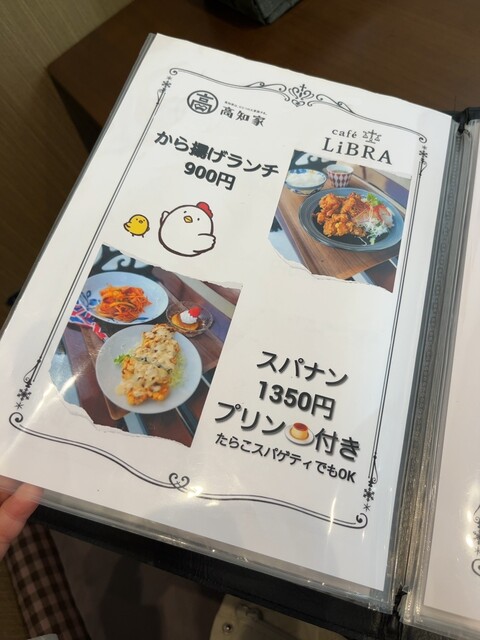 高知家
café
LiBRA
から揚げランチ
900円
スパナン
1350円
プリン🍮付き
たらこスパゲティでもOK